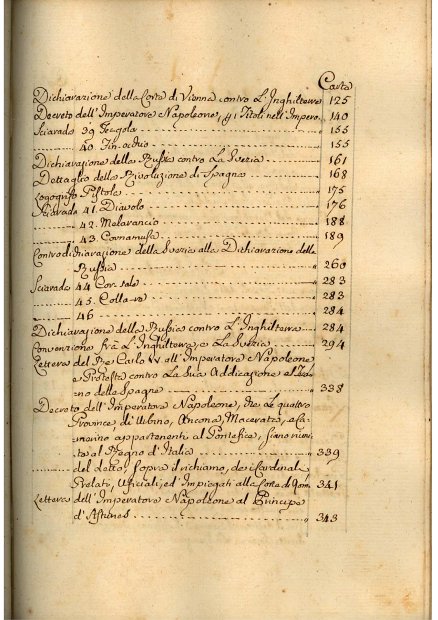 Carta
Dichiarazione della Corte di Vienna contro L'Inghilterra 125
Decreto dell'Imperatore Napoleone, p i Titoli nell'Impero 140
Sciarade 39 Pergola 155
40 Fin-occhio 155
Dichiarazione della Russia contro La Svezia 161
Dettaglio della Rivoluzione di Spagna 168
Logogrifo Pistola 175
Sciarade 41. Diavolo 176
42. Melarancio 188
43. Cornamusa 189
Controdichiarazione della Svezia alla Dichiarazione della
Russia 260
Sciarade 44 Cor-sale 283
45. Colla-re 283
46 284
Dichiarazione della Russia contro L'Inghilterra 284
Convenzione frà L'Inghilterra e La Svezia 294
Lettera del Re Carlo IV all'Imperatore Napoleone
e Protesta contro La Sua Addicazione al Tro-
no della Spagna 338
Decreto dell'Imperatore Napoleone, che le quattro
Province di Urbino, Ancona, Macerata, e Ca-
merino appartenenti al Pontefice, siano riuni-
te al Regno d'Italia 339
del detto, sopra il richiamo, dei Cardinali
Prelati, Uficiali, ed Impiegati alla Corte di Rom. 341
Lettera dell'Imperatore Napoleone al Principe
d'Asturies 343